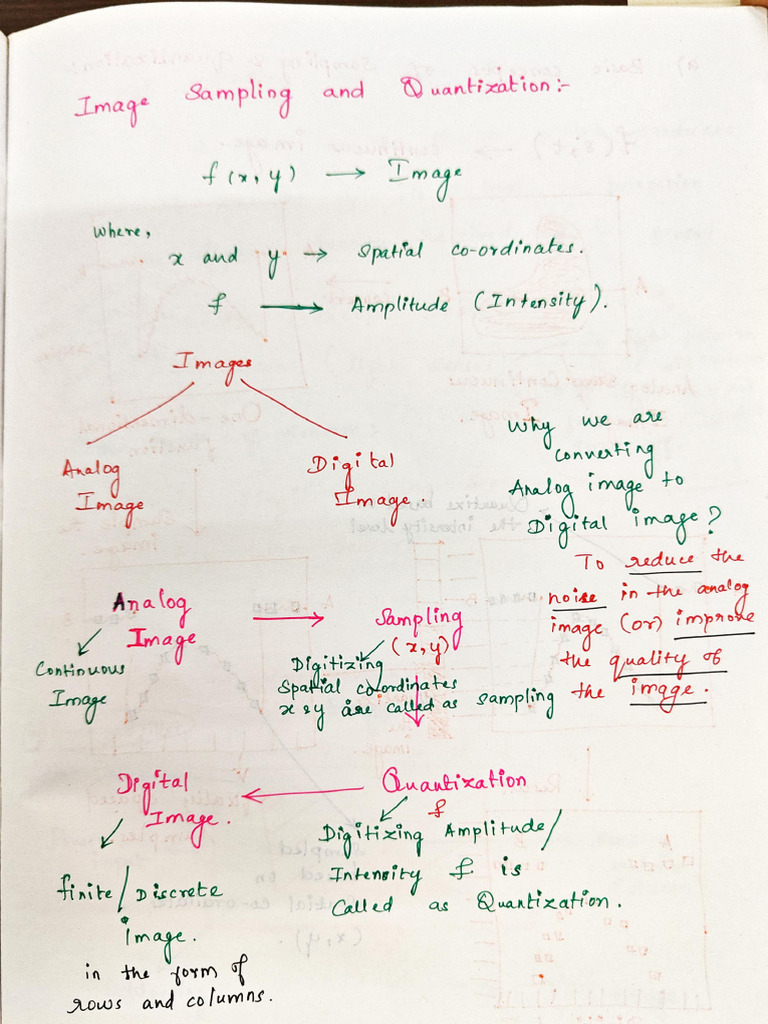 Image Sampling and Quantization:-
f(x, y) → Image
where,
x and y → Spatial co-ordinates.
f → Amplitude (Intensity).
Images
Analog
Image
Digital
Image.
Why we are
converting
Analog image to
Digital image?
To reduce the
noise in the analog
image (or) improve
the quality of
the image.
Analog
Image
→
Sampling
(x, y)
Continuous
Image
Digitizing
Spatial coordinates
x & y are called as sampling
Digital
Image.
←
Quantization
f
Digitizing Amplitude/
Intensity f is
Called as Quantization.
finite/Discrete
image.
in the form of
rows and columns.